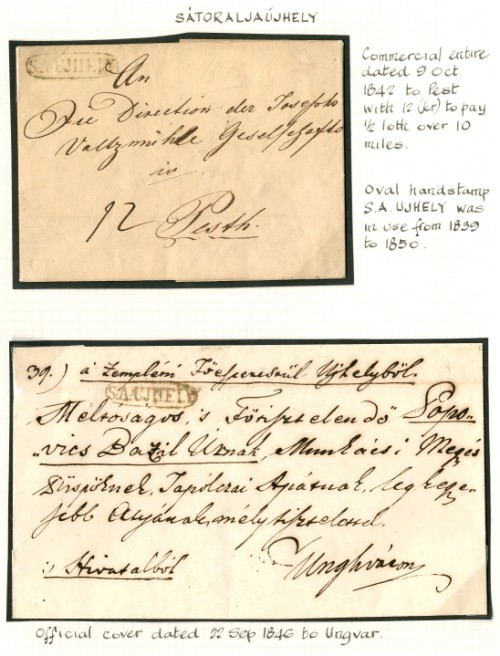 SÁTORALJAÚJHELY
S.A.UJHELY
An
Die Direction der Josephs
Valtzmühle Geselschafts
in
12 Pesth.
Commercial entire
dated 9 Oct
1842 to Pest
with 12 (kr) to pay
½ loth over 10
miles.
Oval handstamp
S.A. UJHELY was
in use from 1839
to 1850.
39.) á Zempléni Főesperestül Ujhelyből.
S.A.UJHELY
Méltoságos, 's Főtisztelendő Popo-
vics Bazil Úrnak, Munkácsi Megés
Püspöknek, Tapolczai Apátnak, legkegye-
sebb Atyának, mély tisztelettel.
Hivatalból Unghváron
Official cover dated 22 Sep 1846 to Ungvar.